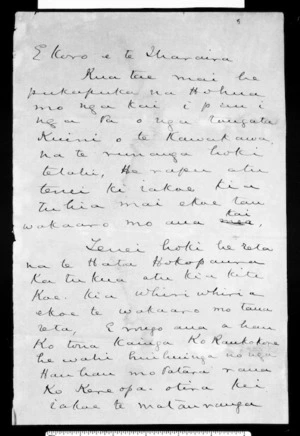 E Koro e te Tharaira
Kua tae mai he
pukapuka na Hohua
mo nga kai i pau i
nga Pa o nga tangata
Kuini o te Kawakawa,
na te runanga hoki
tetahi, He rapu atu
tenei ki a koe kia
tuhia mai e koe tau
kai
wakaaro mo ana mea,
Tenei hoki he reta
na te Hata Hokopaura
Ka tukua atu kia kite
Koe. Kia whiriwhiria
e koe te wakaaro mo tana
reta, E rongo ana ahau
Ko tona Kainga Ko
he wahi huihuinga no nga
Hauhau mo Patara raua
Ko Kereopa. otira kei
a koe te matauranga